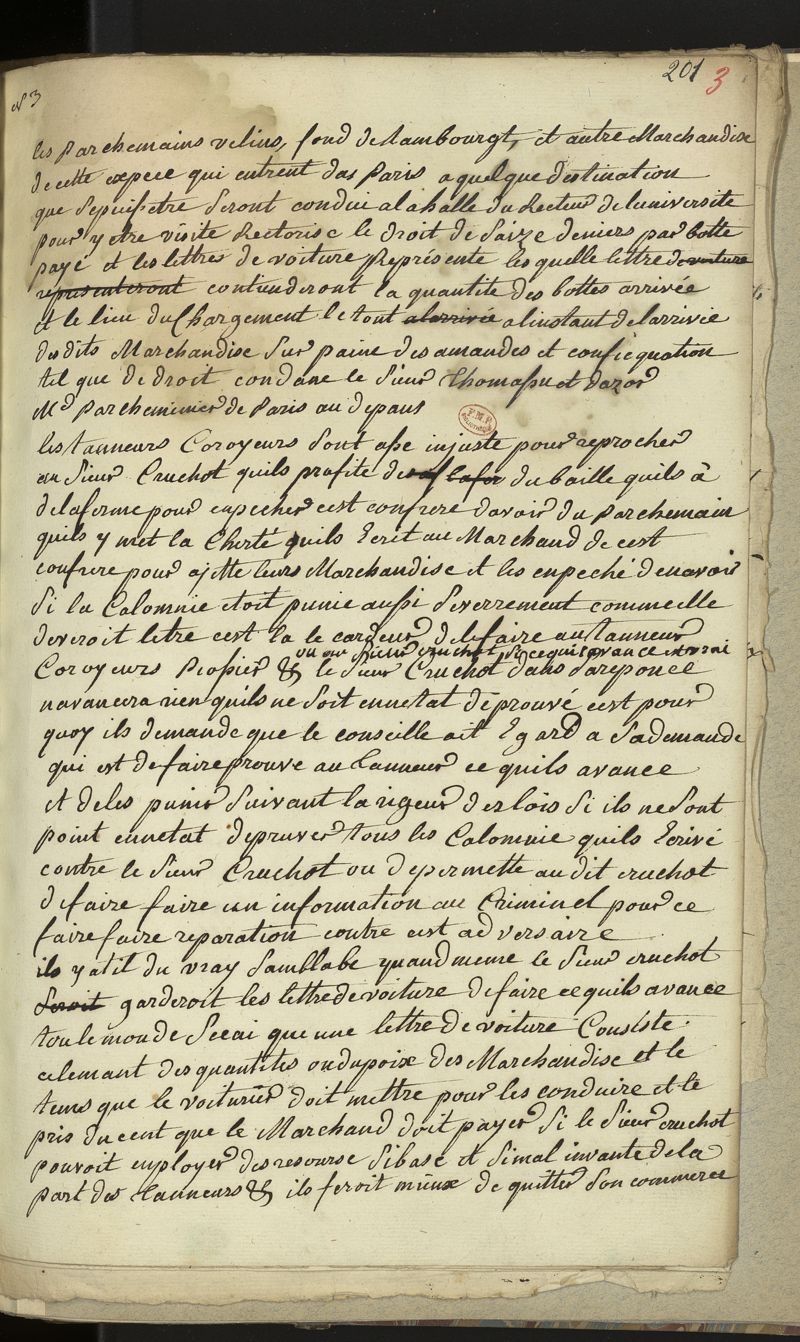 201 3
N 3
les Parchemains velins, fond de Tambourgt, et autre Marchandise
de cette expece qui entrent das Paris a quelque destination
que se puisetre seront condui a la halle du Recteur de luniversite
pour y etre visite Rectorise le droit de Saize deniers par botte
payé et les lettres de voiture Représente lesquelle lettre de voiture
representeront contienderont la quantité des bottes arrivée
et le lieu du Chargement le tout a larrivée a linstant de larrivée
des dits Marchandise sur paine des amandes et confiequation
tel que de droit condane le Sieur Thomassin et dazor
Md Parcheminier de Paris au depans
les tanneurs Coroyeurs sont asse injuste pour reprocher
au Sieur Cruchot quils profite des du baille quils à
de la ferme pour enpecher cest confrere davoir du Parchemain
quils y met la Cherté quils Ecrit au Marchand de cest
confrere pour ajette leurs Marchandise et les enpeché denavoir
Si la Calomnie etoit punie aussi severrement comme elle
deveroit letre cest la le cardeur de le faire au tanneur
ou au Sieur cruchot si ce quil avance et vrai
Coroyeurs Peossier & le Sieur Cruchot dans sa reponce
navancera rien quils ne soit ennetat déprouvé cest pour
quoy ils demande que le conseille ait Egard a sa demande
qui est de faire prouve au Tanneur ce quils avance
et de les punir suivant la rigeur des lois si ils ne sont
point ennetat depruver tous les Calomnie quils Ecrivé
contre le Sieur Cruchot ou de permette au dit cruchot
de faire faire un information au Criminel pour ce
faire faire reparation contre cest adversaire
ils y atil du vray Samblabe quand meme le Sieur cruchot
seroit garderoit les lettre de voiture de faire ce quils avance
tou le monde Secai que une lettre de voiture Consiste
celemant des quantites ou du poix des Marchandise et le
tems que le voiturier doit mettre pour les conduire et le
pris du cent que le Marchand doit payer Si le Sieur cruchot
pouvoit employer des resourse si base et si mal invante de la
part des Tanneurs & ils feroit mieux de quitter son commerce